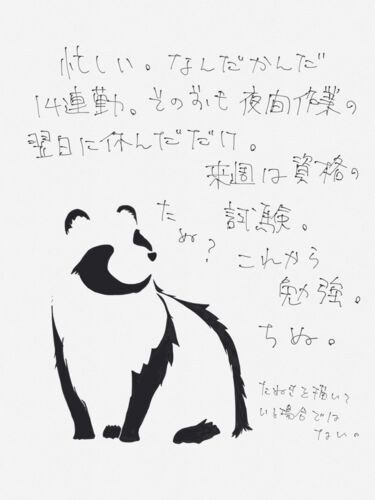 忙しい。なんだかんだ
14連勤。そのおしも夜間作業の
翌日に休んだだけ。
来週は資格の
試験。
たぬ?
これから
勉強。
ちぬ。
たぬきを描いて
いる場合では
ない。